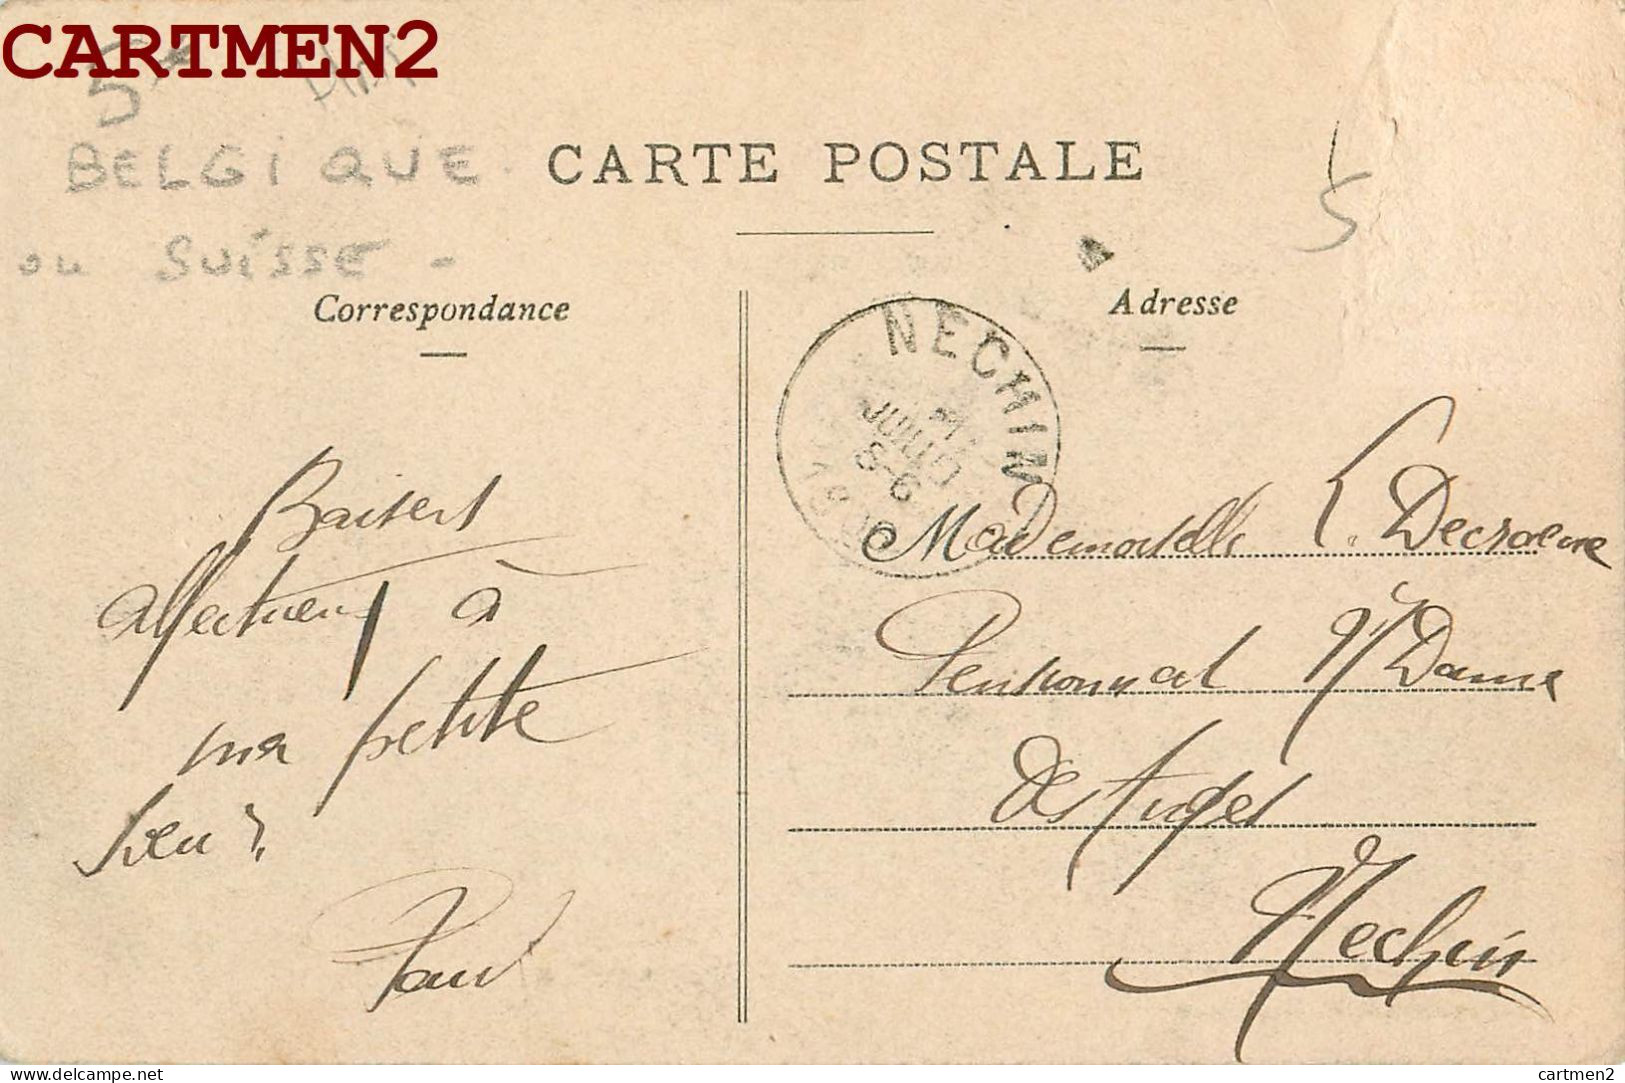 CARTMEN2
5
BELGIQUE
ou SUISSE -
CARTE POSTALE
5
Correspondance
Adresse
NECHIN
JUIL
5-6
Baisers
affectueux à
ma petite
Paul
Mademoiselle L. Decroene
Pensionnat N. Dame
des Anges
Nechin
delcampe.net
cartmen2